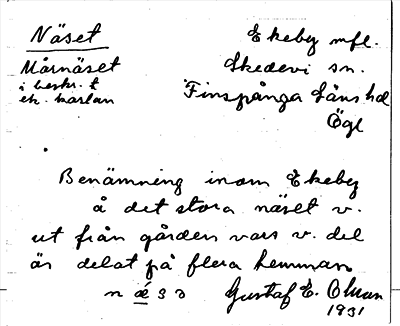 Näset
Ekeby mfl.
Mårnäset
Skedevi sn.
i beskr. t
Finspånga läns hd
ek. kartan
Ögl
Benämning inom Ekeby
å det stora näset v.
ut från gården vars v. del
är delat på flera hemman
n ǽ s ɔ Gustaf E. Olsson
1931